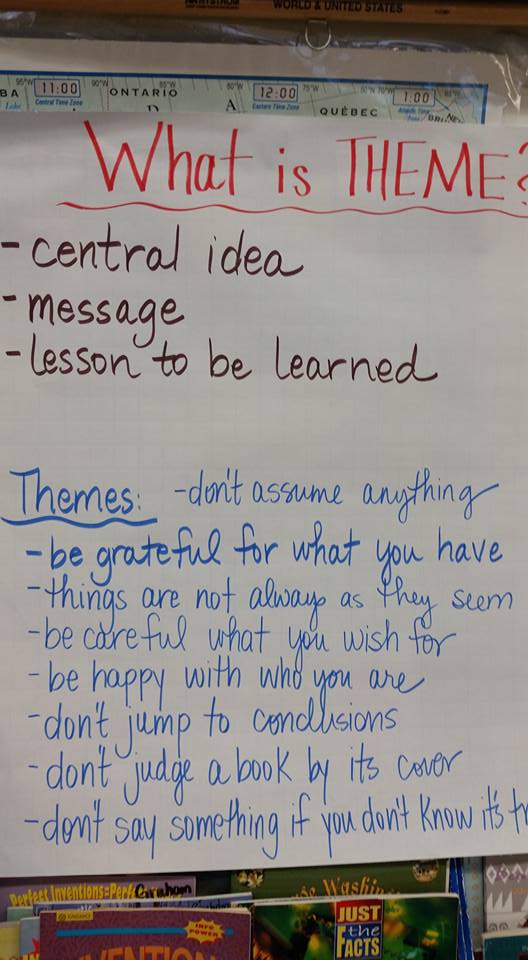 WORLD & UNITED STATES
95°W 90°W 85°W 80°W 75°W
BA 11:00 ONTARIO 12:00 1:00
Central Time Zone Eastern Time Zone
Lake D A QUÉBEC
What is THEME?
- central idea
- message
- lesson to be learned
Themes: - don't assume anything
- be grateful for what you have
- things are not always as they seem
- be careful what you wish for
- be happy with who you are
- don't jump to conclusions
- don't judge a book by its cover
- don't say something if you don't know it's tr
Perfect Inventions=Perf Graham
Washin
INFO POWER
VENTION
JUST
the
FACTS